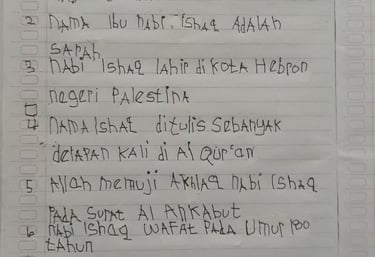 2 nAmA Ibu nAbi. Ishaq AdAlAh
SARAh
3 nAbi Ishaq lahir di kotA Hebron
negeri PAlestinA
4 nAmA Ishaq ditulis sebanyAk
delapan kali di Al Qur'an
5 Allah memuji AkhlAq nAbi Ishaq
PADA SurAt Al AnkAbut
6 nAbi Ishaq WAFAt PADA Umur 180
tAhun